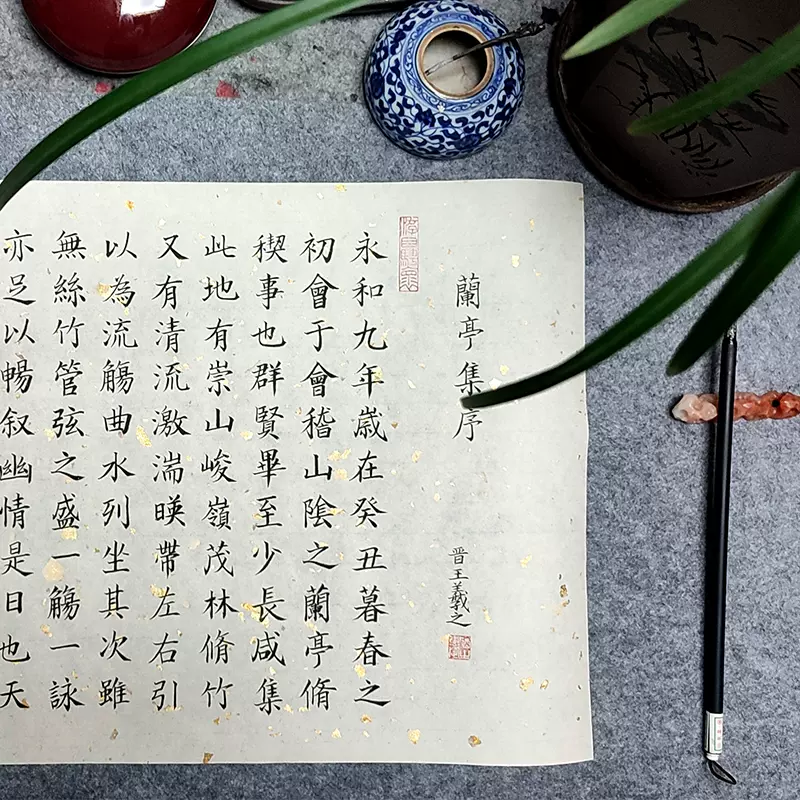 蘭亭集序
晉王羲之
永和九年歲在癸丑暮春之
初會于會稽山陰之蘭亭脩
稧事也群賢畢至少長咸集
此地有崇山峻嶺茂林脩竹
又有清流激湍暎帶左右引
以為流觴曲水列坐其次雖
無絲竹管弦之盛一觴一詠
亦足以暢叙幽情是日也天